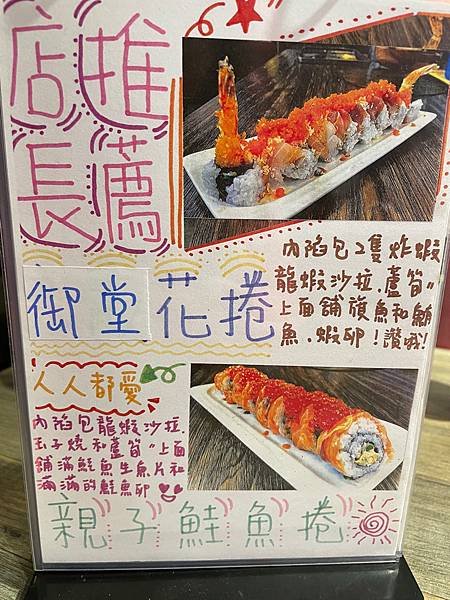 店長
推薦
內陷包2隻炸蝦
龍蝦沙拉.蘆筍"
上面舖旗魚和鮪
魚.蝦卵!讚哦!
御堂花捲
人人都愛
內陷包龍蝦沙拉.
玉子燒和蘆筍"上面
舖滿鮭魚生魚片和
滿滿的鮭魚卵
親子鮭魚捲